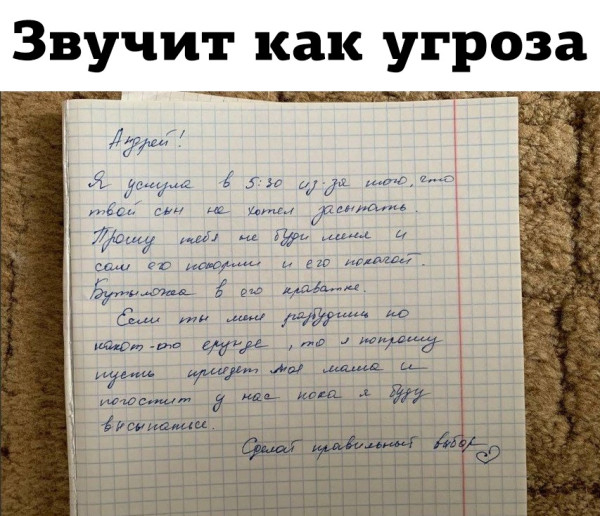 Звучит как угроза
Андрей!
Я уснула в 5:30 из-за того, что
твой сын не хотел засыпать.
Прошу тебя не буди меня и
сам его покорми и его покачай.
Бутылочка в его кроватке.
Если ты меня разбудишь по
какой-то ерунде, то я попрошу
пусть приедет моя мама и
погостит у нас пока я буду
высыпаться.
Сделай правильный выбор